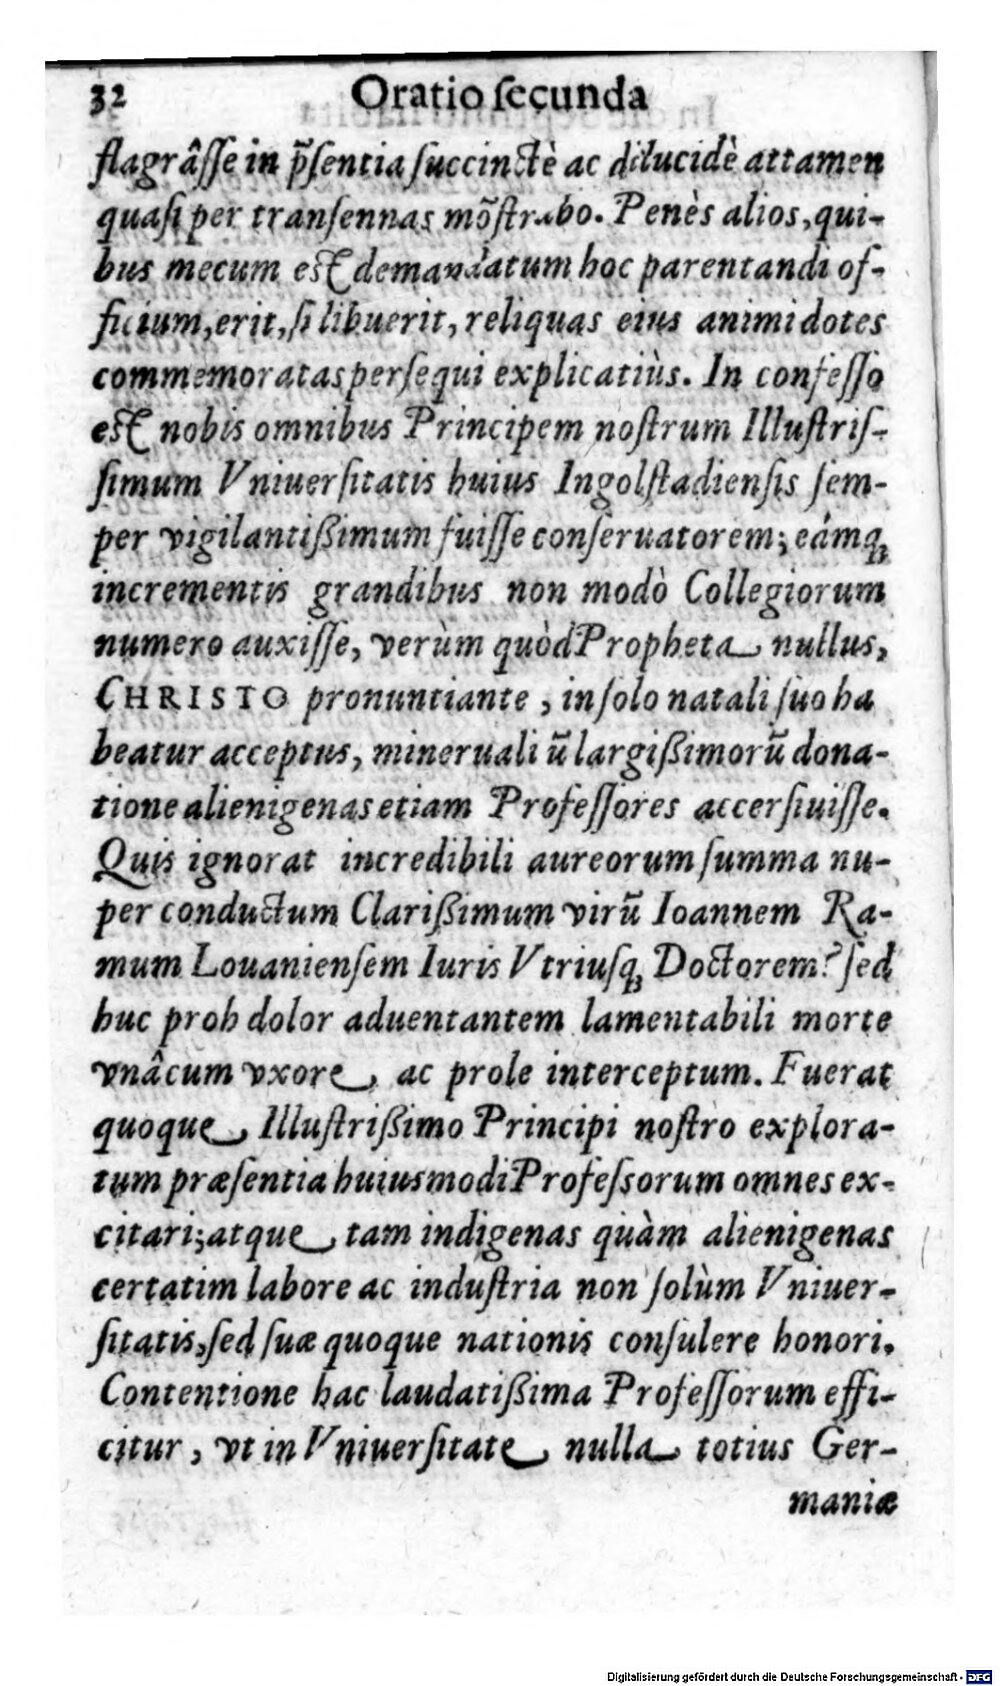 32 Oratio ſecunda
flagrâſſe in p̃ſentia ſuccinctè ac dilucidè attamen
quaſi per tranſennas mõſtrabo. Penès alios, qui-
bus mecum eſt demandatum hoc parentandi of-
ficium, erit, ſi libuerit, reliquas eius animi dotes
commemoratas perſequi explicatiùs. In confeſſo
eſt nobis omnibus Principem noſtrum Illuſtriſ-
ſimum Vniuerſitatis huius Ingolſtadienſis ſem-
per vigilantißimum fuiſſe conſeruatorem; eámq́;
incrementis grandibus non modò Collegiorum
numero auxiſſe, verùm quòd Propheta nullus,
CHRISTO pronuntiante, in ſolo natali ſuo ha
beatur acceptus, mineruali ũ largißimorũ dona-
tione alienigenas etiam Profeſſores accerſiuiſſe.
Quis ignorat incredibili aureorum ſumma nu-
per conductum Clarißimum virũ Ioannem Ra-
mum Louanienſem Iuris Vtriuſq; Doctorem? ſed
huc proh dolor aduentantem lamentabili morte
vnâcum vxore, ac prole interceptum. Fuerat
quoque Illuſtrißimo Principi noſtro explora-
tum præſentia huiusmodi Profeſsorum omnes ex-
citari; atque tam indigenas quàm alienigenas
certatim labore ac induſtria non ſolùm Vniuer-
ſitatis, ſed ſuæ quoque nationis conſulere honori.
Contentione hac laudatißima Profeſſorum effi-
citur, vt in Vniuerſitate nulla totius Ger-
maniæ
Digitalisierung gefördert durch die Deutsche Forschungsgemeinschaft - DFG